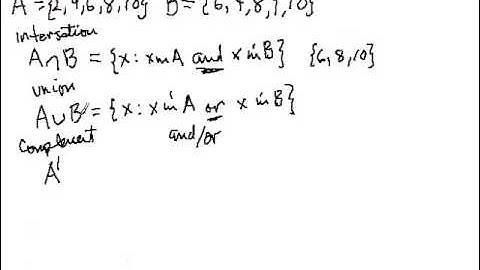 A = {2,4,6,8,10} B = {6,7,8,9,10}
intersation
A∩B = {x: x in A and x in B} {6,8,10}
union
A∪B = {x: x in A or x in B}
and/or
complement
A'